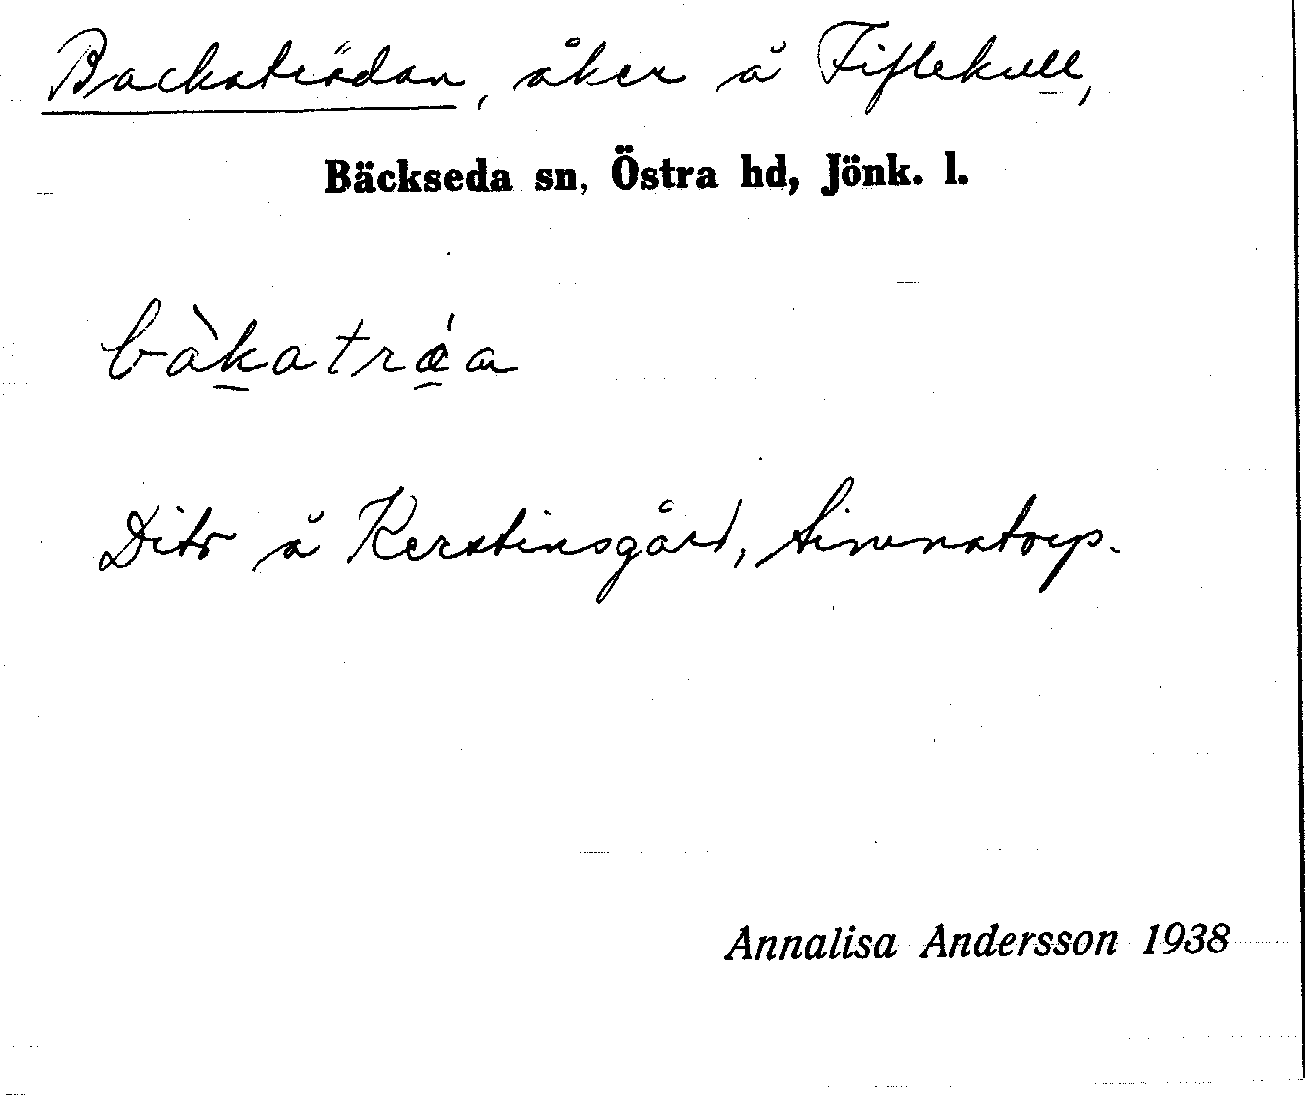 Backaträdan, åker å Fiflekull,
Bäckseda sn, Östra hd, Jönk. l.
bàkatrǽa
Dito å Kerstinsgård, Simnatorp.
Annalisa Andersson 1938